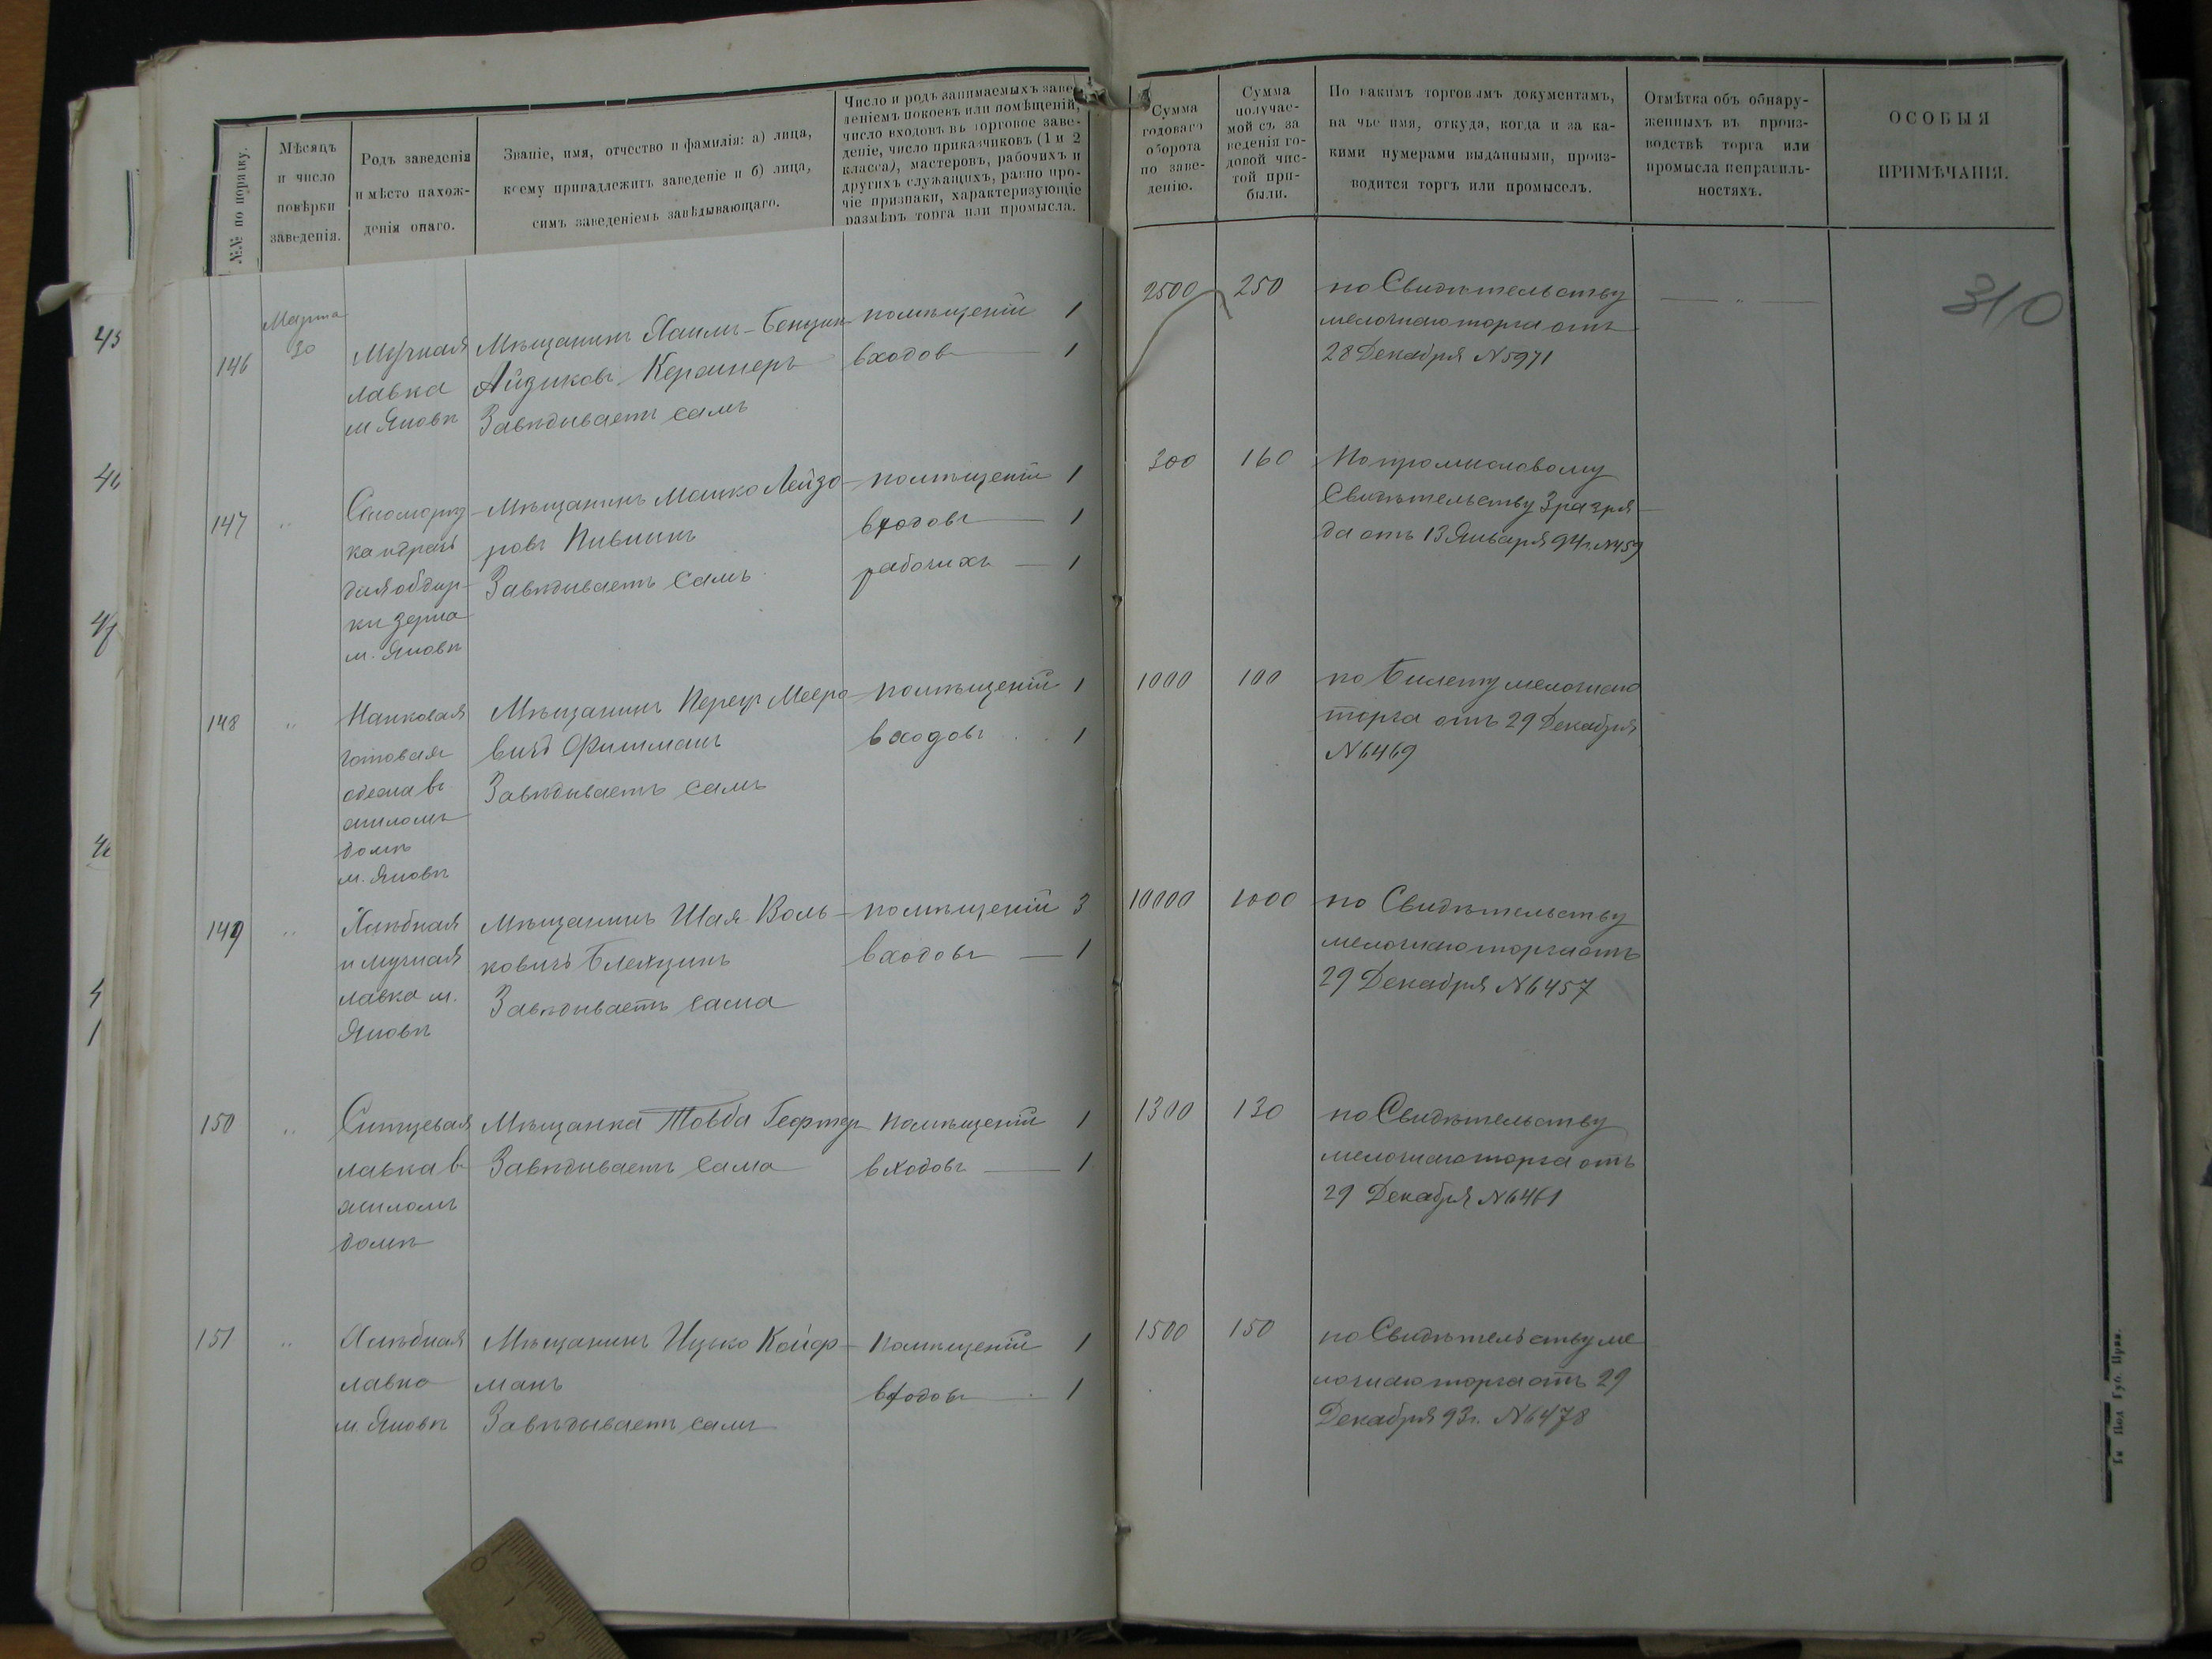 №№ по порядку.
Мѣсяцъ
и число
повѣрки
заведенія.
Родъ заведенія
и мѣсто нахож-
денія онаго.
Званіе, имя, отчество и фамилія: а) лица,
коему принадлежитъ заведеніе и б) лица,
симъ заведеніемъ завѣдывающаго.
Число и родъ занимаемыхъ заве-
деніемъ покоевъ или помѣщеній,
число входовъ въ торговое заве-
деніе, число приказчиковъ (1 и 2
класса), мастеровъ, рабочихъ и
другихъ служащихъ, равно про-
чіе признаки, характеризующіе
размѣръ торга или промысла.
Сумма
годоваго
оборота
по заве-
денію.
Сумма
получае-
мой съ за
веденія го-
довой чис-
той при-
были.
По какимъ торговымъ документамъ,
на чье имя, откуда, когда и за ка-
кими нумерами выданными, произ-
водится торгъ или промыселъ.
Отмѣтка объ обнару-
женныхъ въ произ-
водствѣ торга или
промысла неправиль-
ностяхъ.
ОСОБЫЯ
ПРИМѢЧАНІЯ.
310
146
Марта
30
Мучная
лавка
м Яновѣ
Мѣщанинъ Хаимъ-Бенцин
Айзиковъ Кершнеръ
Завѣдываетъ самъ
помѣщеній 1
входовъ — 1
2500
250
по Свидѣтельству
мелочнаго торга отъ
28 Декабря №5971
— " —
147
"
кадрачь
для обдир-
ки зерна
м. Яновѣ
Мѣщанинъ Мошко Лейзо-
ровъ Пивникъ
Завѣдываетъ самъ
помѣщеній 1
входовъ — 1
рабочихъ — 1
300
160
По промысловому
Свидѣтельству 3 разря-
да отъ 13 Января 94 г. №459
148
"
готовая
одежа въ
жиломъ
домѣ
м. Яновѣ
Мѣщанинъ Перец Мееро-
вичъ Фишманъ
Завѣдываетъ самъ
помѣщеній 1
входовъ . . 1
1000
100
по Билету мелочнаго
торга отъ 29 Декабря
№6469
149
"
Хлѣбная
и мучная
лавка м.
Яновѣ
Мѣщанинъ Шая Воль-
ковичъ
Завѣдываетъ сама
помѣщеній 3
входовъ — 1
10000
1000
по Свидѣтельству
мелочнаго торга отъ
29 Декабря №6457
150
"
Ситцевая
лавка въ
жиломъ
домѣ
Мѣщанка Товба Гефтер
Завѣдываетъ сама
помѣщеній 1
входовъ — 1
1300
130
по Свидѣтельству
мелочнаго торга отъ
29 Декабря №6461
151
"
Хлѣбная
лавка
м. Яновѣ
Мѣщанинъ Ицько Койф-
манъ
Завѣдываетъ самъ
помѣщеній 1
входовъ — 1
1500
150
по Свидѣтельству ме
лочнаго торга отъ 29
Декабря 93 г. №6478
0 1 2